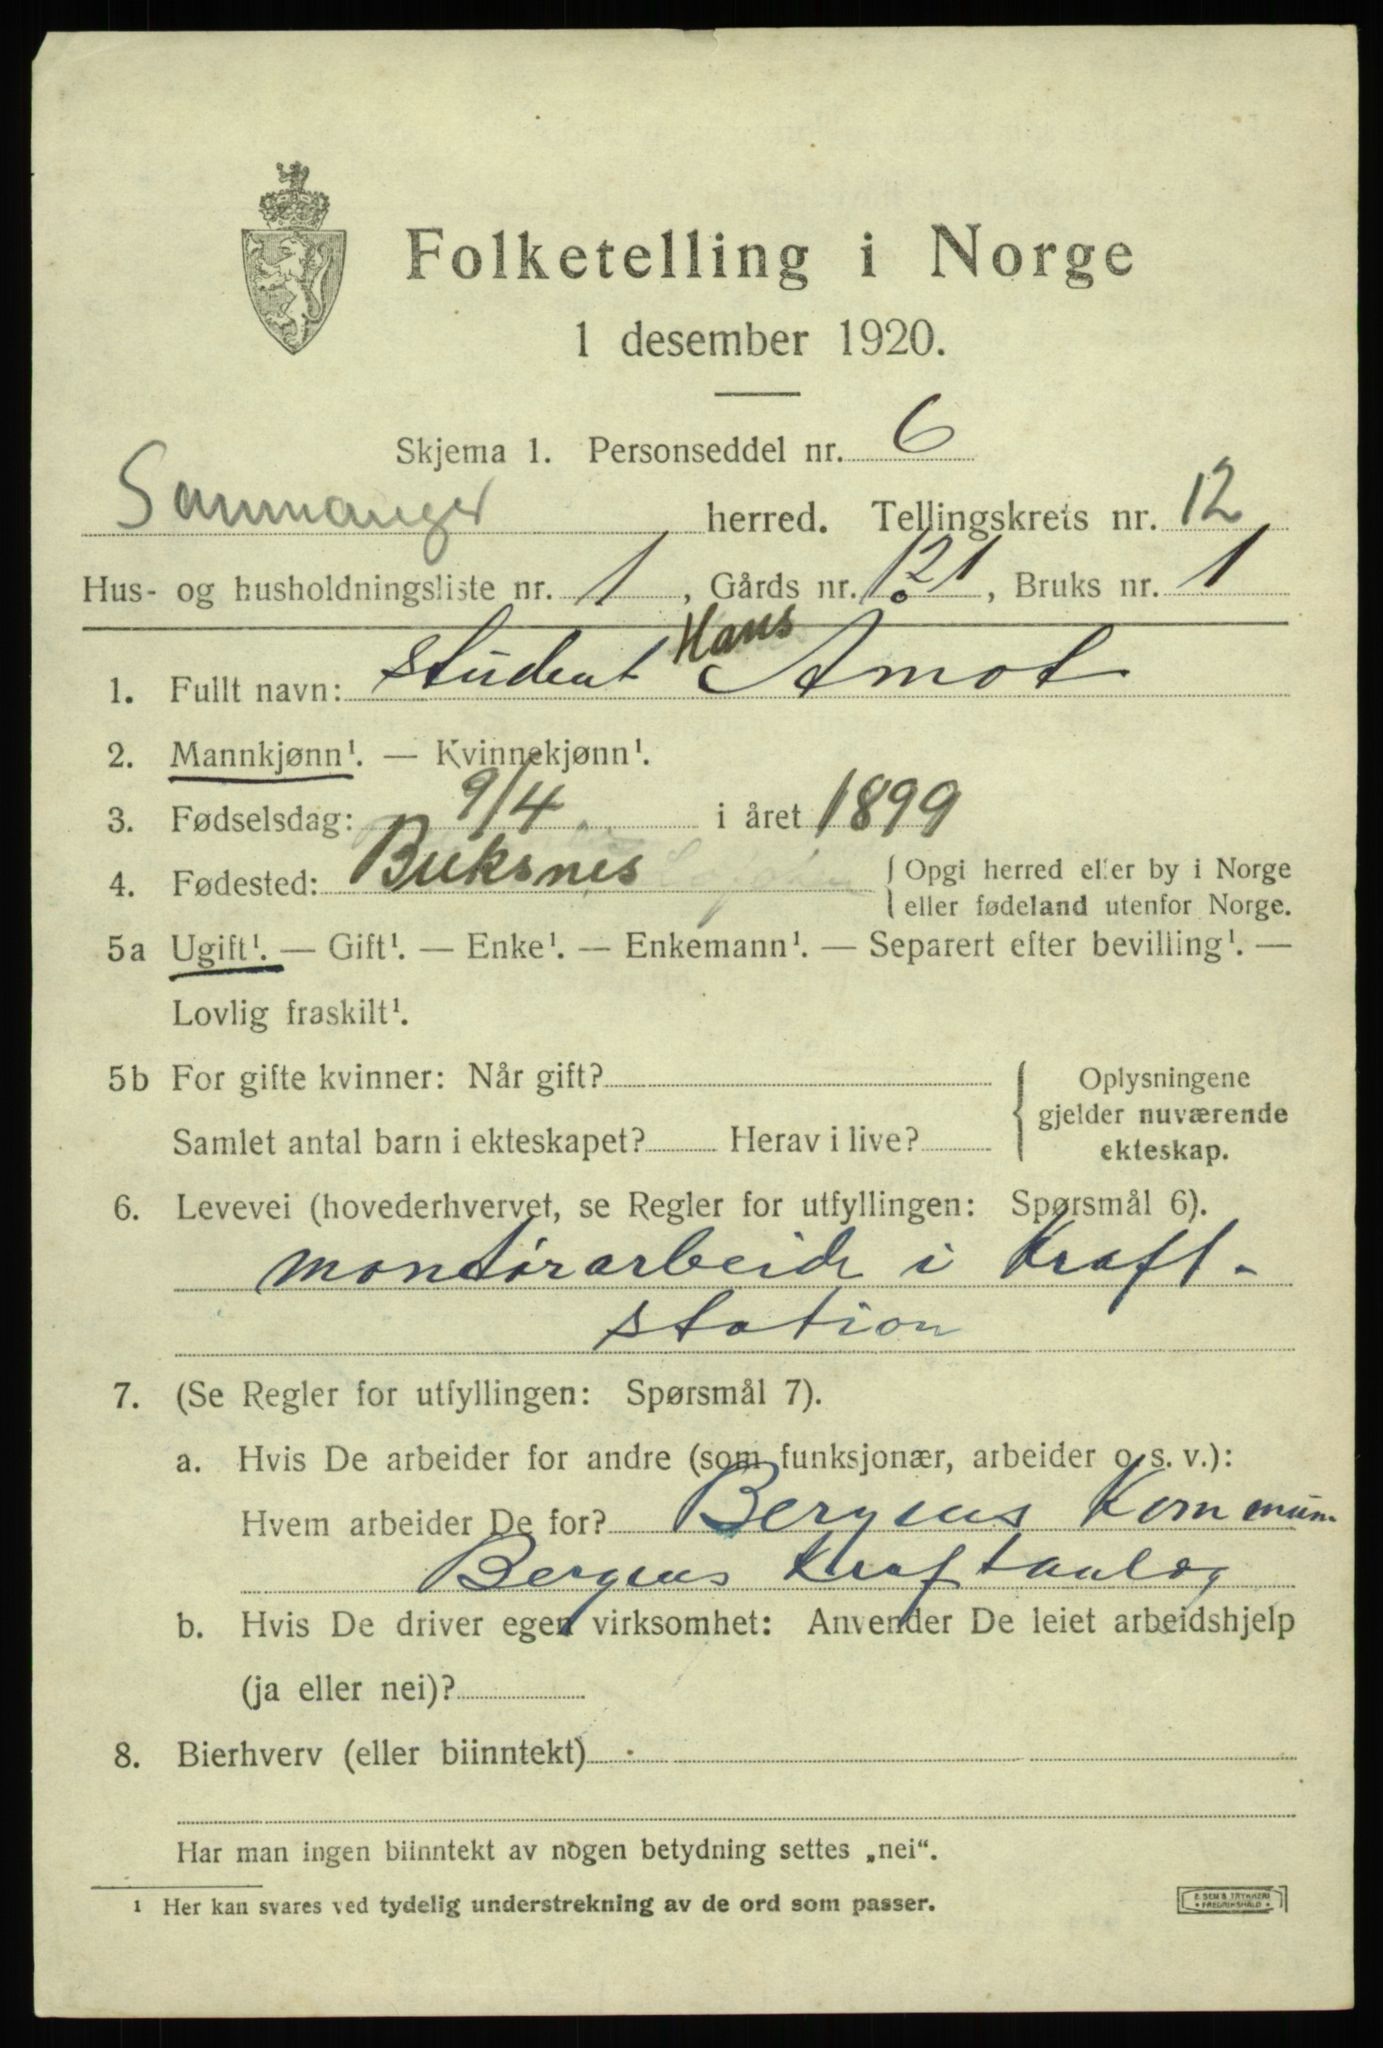 Folketelling i Norge
1 desember 1920.
Skjema 1. Personseddel nr. 6
Samnanger herred. Tellingskrets nr. 12
Hus- og husholdningsliste nr. 1, Gårds nr. 21, Bruks nr. 1
1. Fullt navn: student Hans Amot
2. Mannkjønn¹. — Kvinnekjønn¹.
3. Fødselsdag: 9/4 i året 1899
4. Fødested: Buksnes { Opgi herred eller by i Norge
eller fødeland utenfor Norge.
5a Ugift¹. — Gift¹. — Enke¹. — Enkemann¹. — Separert efter bevilling¹. —
Lovlig fraskilt¹.
5b For gifte kvinner: Når gift? Oplysningene
gjelder nuværende
Samlet antal barn i ekteskapet? Herav i live? ekteskap.
6. Levevei (hovederhvervet, se Regler for utfyllingen: Spørsmål 6).
montørarbeide i Kraft-
station
7. (Se Regler for utfyllingen: Spørsmål 7).
a. Hvis De arbeider for andre (som funksjonær, arbeider o. s. v.):
Hvem arbeider De for? Bergens Kommun
Bergens Kraftanlæg
b. Hvis De driver egen virksomhet: Anvender De leiet arbeidshjelp
(ja eller nei)?
8. Bierhverv (eller biinntekt)
Har man ingen biinntekt av nogen betydning settes „nei“.
¹ Her kan svares ved tydelig understrekning av de ord som passer.
E. SEM'S TRYKKERI
FREDRIKSHALD